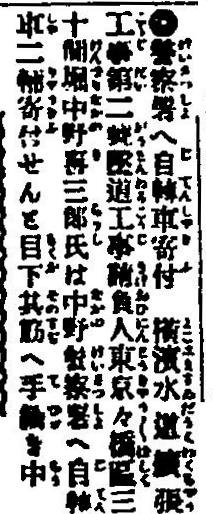 ◎警察署へ自轉車寄付 横濱水道擴張
工事第二號隧道工事請負人東京々橋區三
十間堀中野喜三郎氏は中野警察署へ自轉
車二輛寄付せんと目下其筋へ手續き中